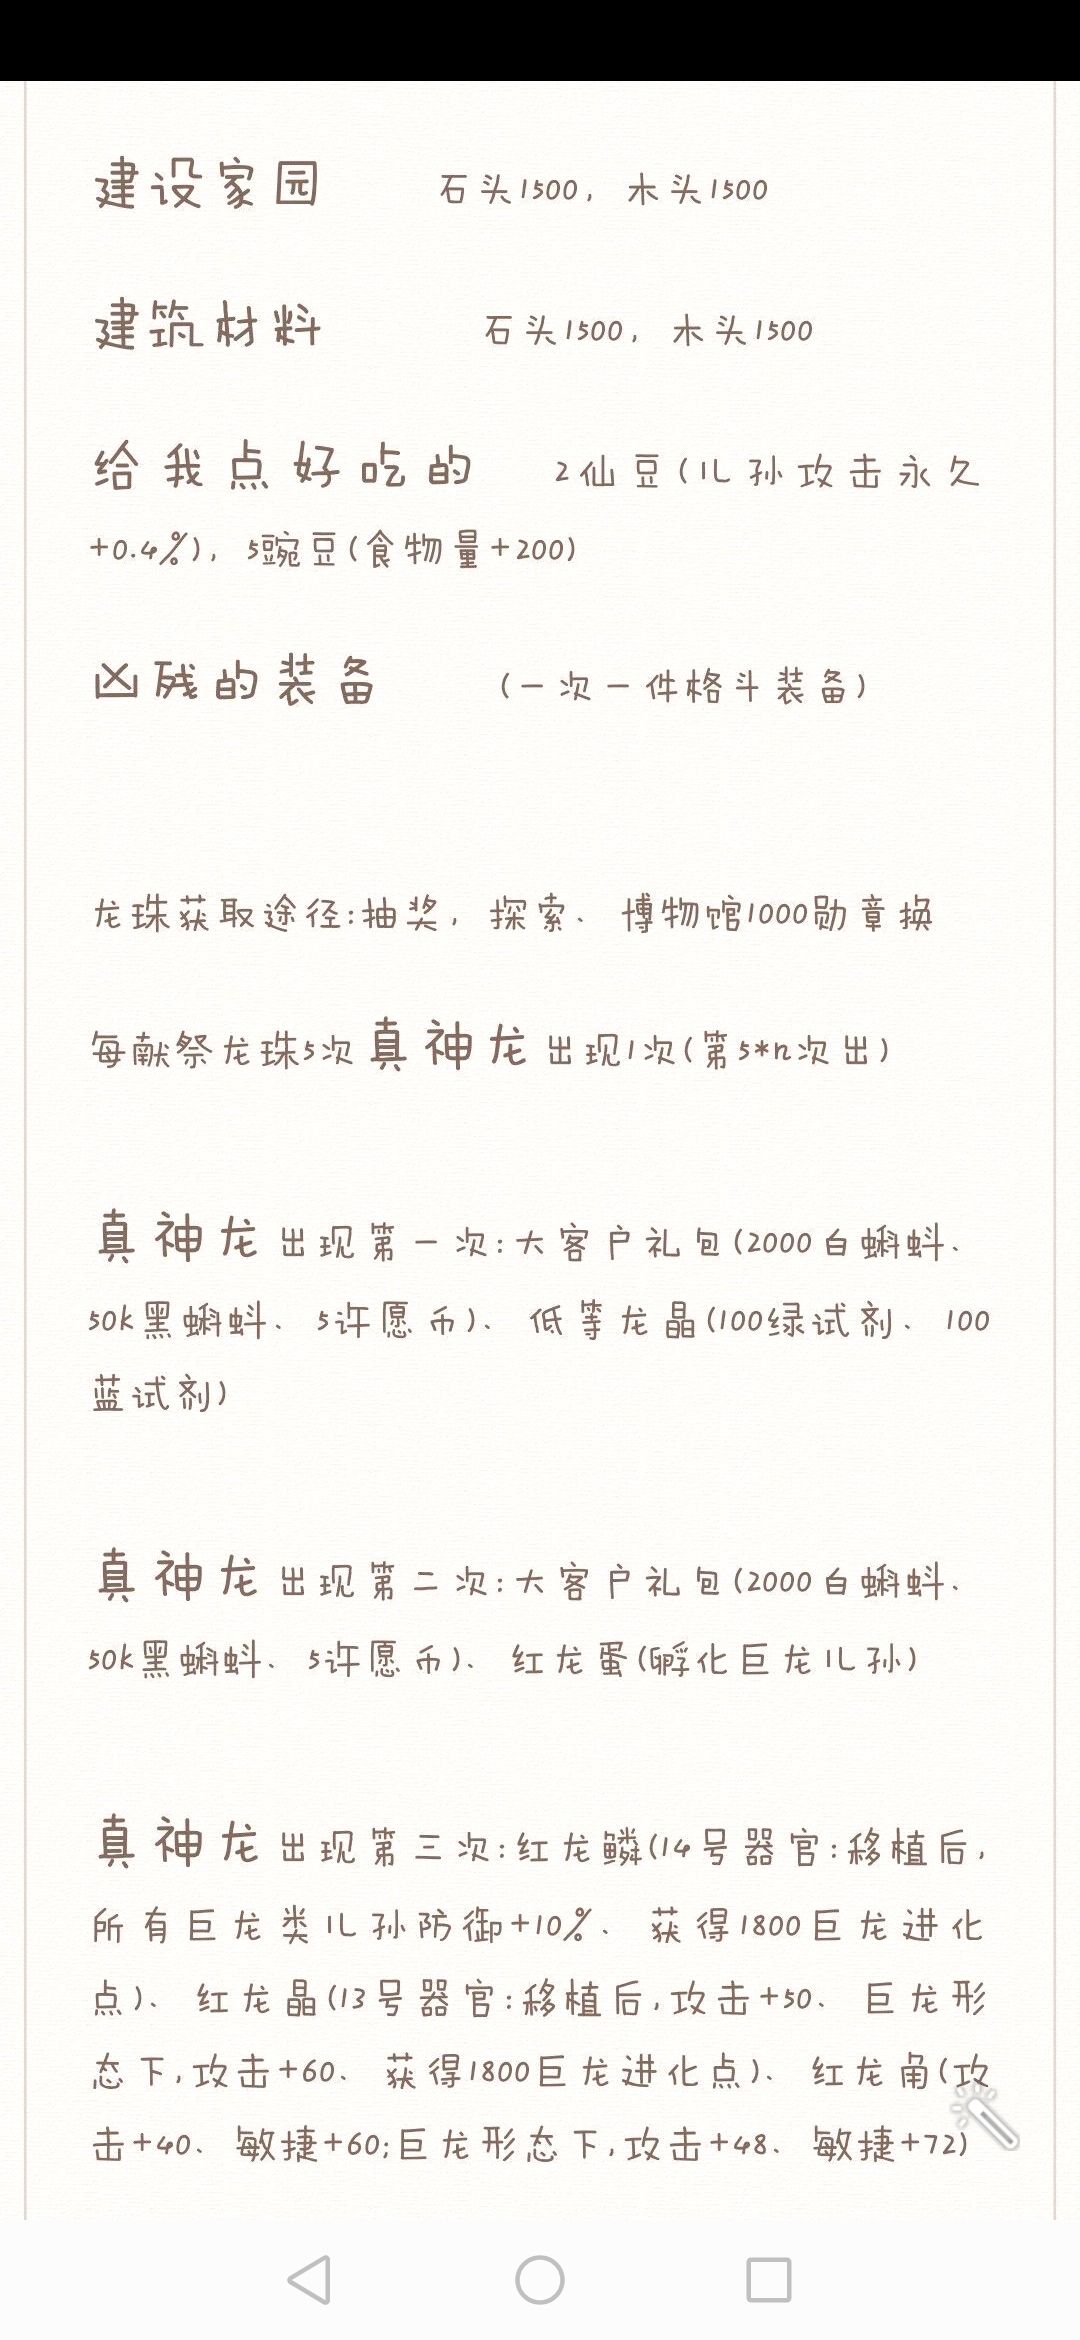 建设家园 石头1500，木头1500
建筑材料 石头1500，木头1500
给我点好吃的 2仙豆(儿孙攻击永久
+0.4%)，5豌豆(食物量+200)
凶残的装备 (一次一件格斗装备)
龙珠获取途径:抽奖，探索、博物馆1000勋章换
每献祭龙珠5次真神龙出现1次(第5*n次出)
真神龙出现第一次:大客户礼包(2000白蝌蚪、
50k黑蝌蚪、5许愿币)、低等龙晶(100绿试剂、100
蓝试剂)
真神龙出现第二次:大客户礼包(2000白蝌蚪、
50k黑蝌蚪、5许愿币)、红龙蛋(孵化巨龙儿孙)
真神龙出现第三次:红龙鳞(14号器官:移植后,
所有巨龙类儿孙防御+10%、获得1800巨龙进化
点)、红龙晶(13号器官:移植后,攻击+50、巨龙形
态下,攻击+60、获得1800巨龙进化点)、红龙角(攻
击+40、敏捷+60;巨龙形态下,攻击+48、敏捷+72)